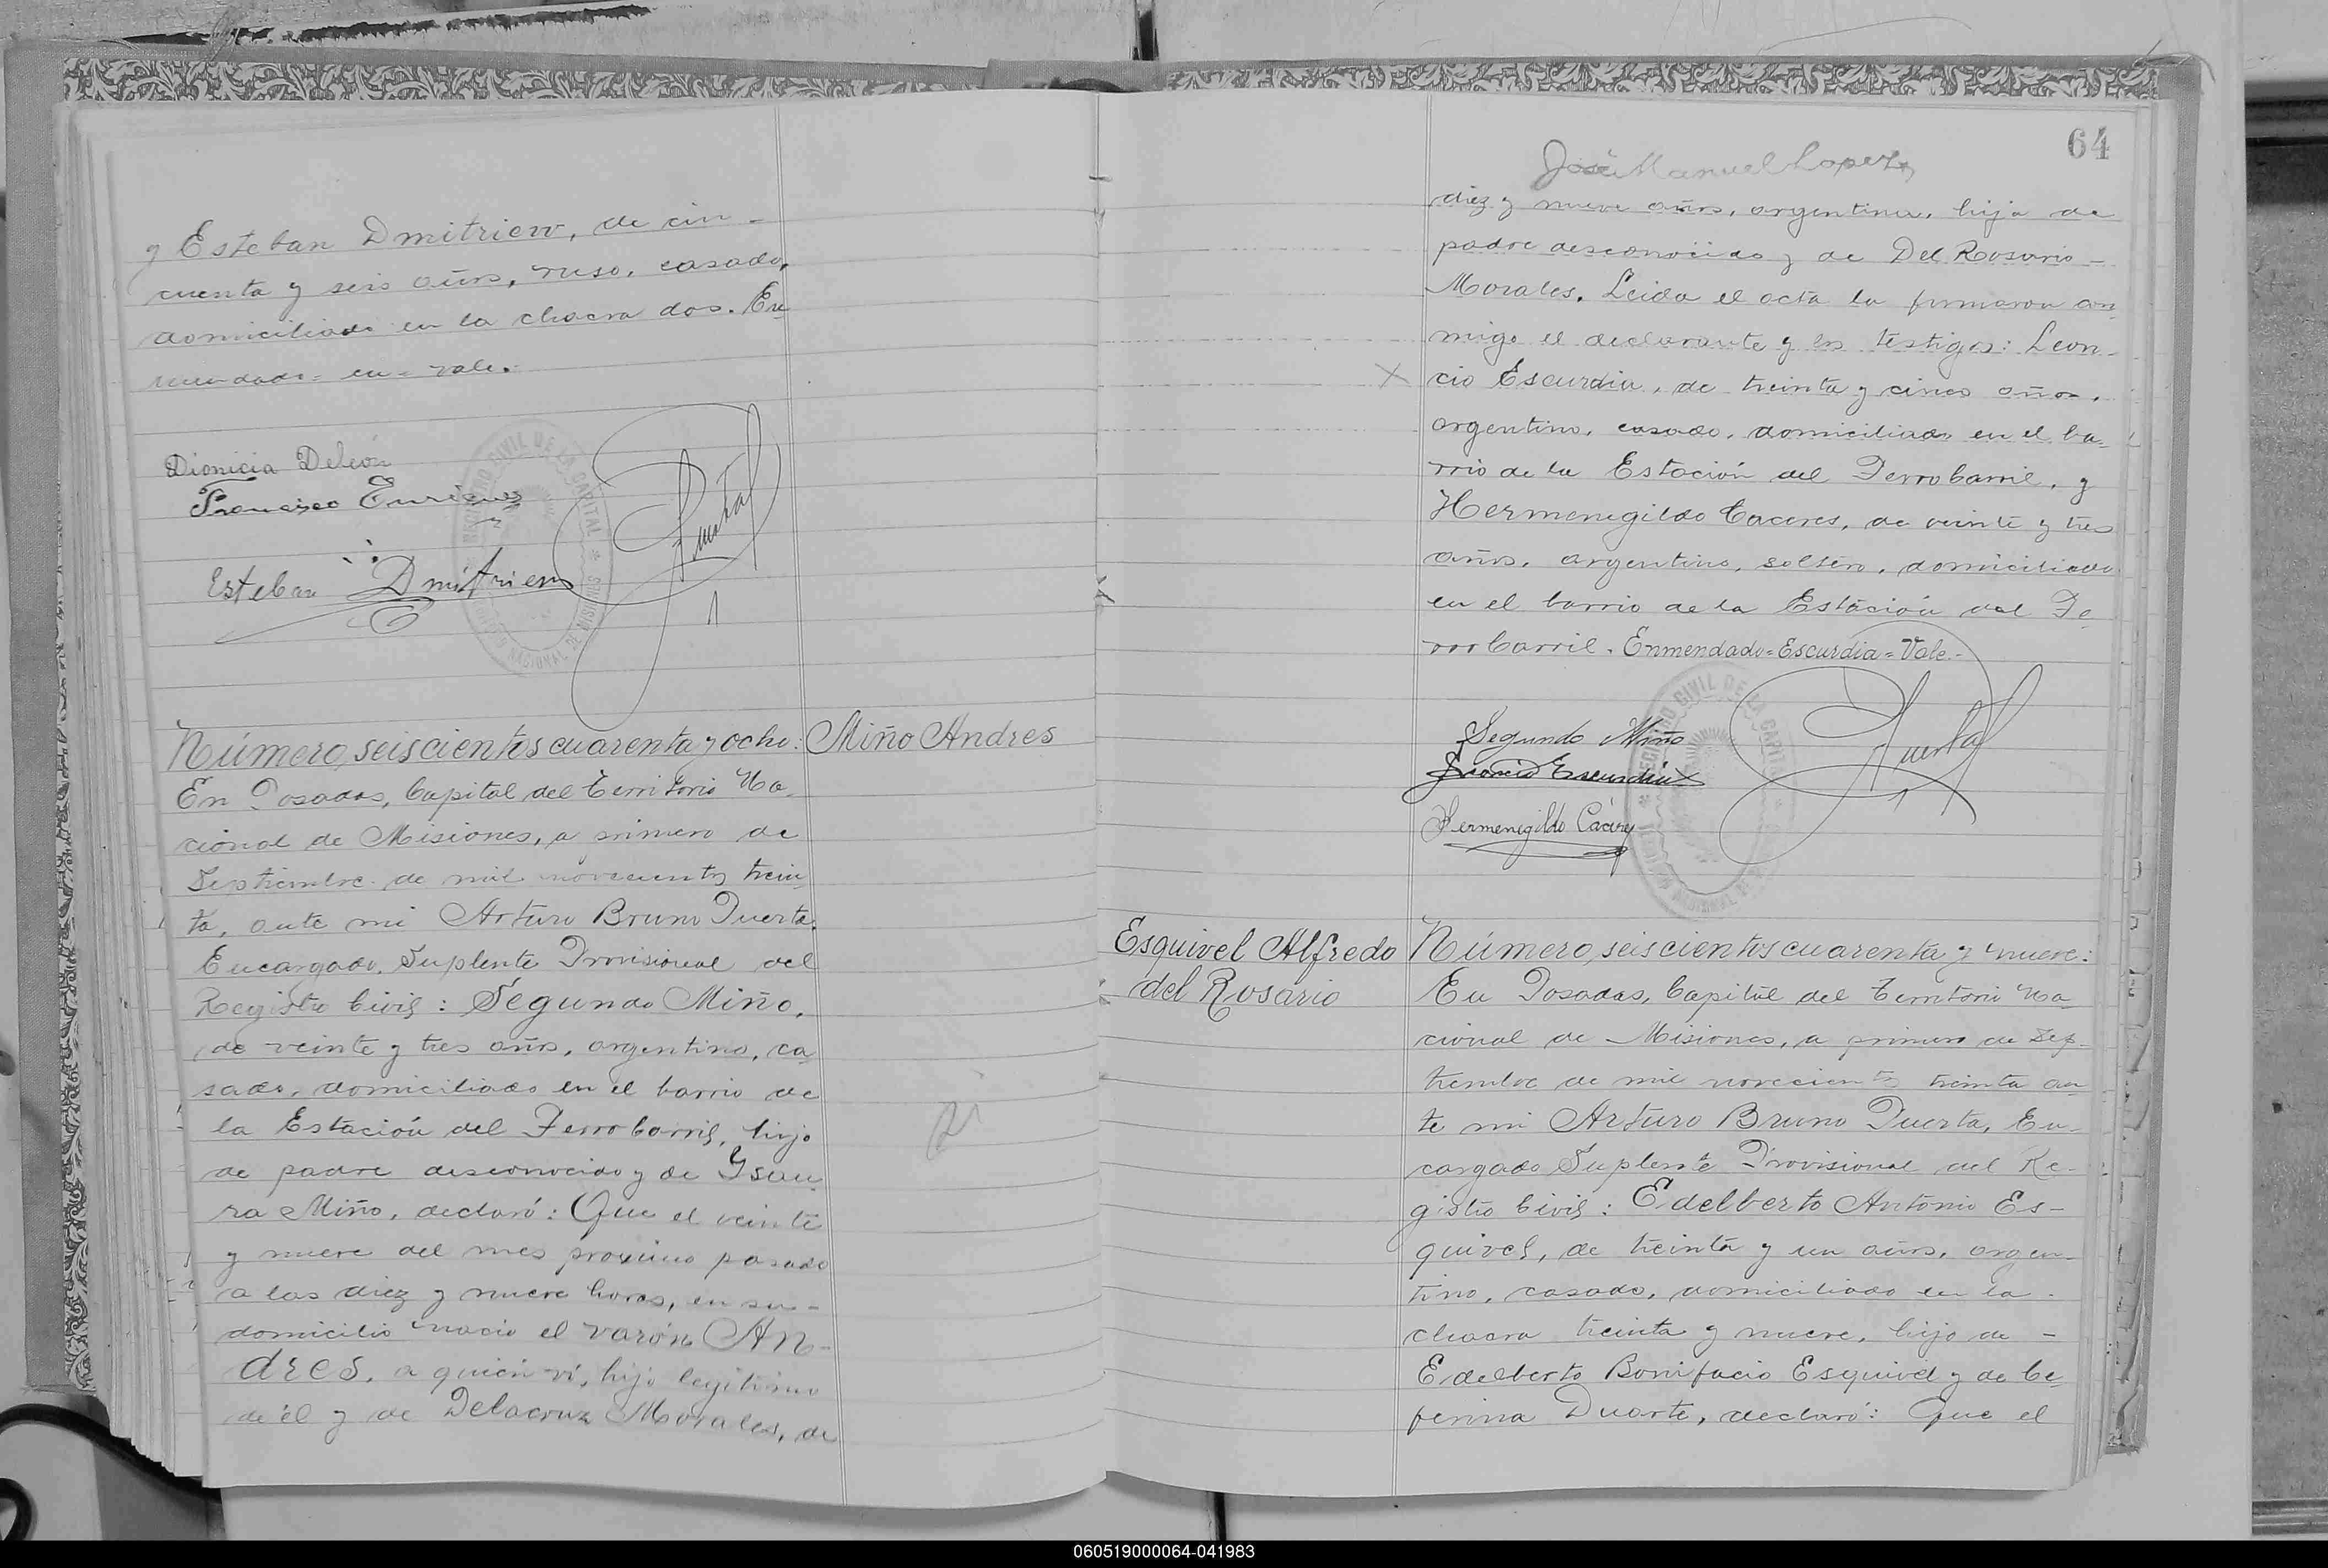 y Esteban Dmitriew, de cin-
cuenta y seis años, ruso, casado,
domiciliado en la chacra dos. En
mendado= en= vale.
Dionicia Deleón
Francisco Enriquez
Esteban Dmitriew
REGISTRO CIVIL DE LA CAPITAL
TERRITORIO NACIONAL DE MISIONES
Número seiscientos cuarenta y ocho:
Miño Andres
En Posadas, Capital del Territorio Na-
cional de Misiones, a primero de
Septiembre de mil novecientos trein-
ta, ante mi Arturo Bruno Puerta,
Encargado Suplente Provisional del
Registro Civil: Segundo Miño,
de veinte y tres años, argentino, ca-
sado, domiciliado en el barrio de
la Estación del Ferro Carril, hijo
de padre desconocido y de Ysau-
ra Miño, declaró: Que el veinte
y nueve del mes proximo pasado
a las diez y nueve horas, en su-
domicilio nació el varón An-
dres, a quien ví, hijo legitimo
de él y de Delacruz Morales, de
64
José Manuel Lopez
diez y nueve años, argentina, hija de
padre desconocido y de Del Rosario-
Morales. Leida el acta la firmaron con-
migo el declarante y los testigos: Leon-
cio Escurdia, de treinta y cinco años,
argentino, casado, domiciliado en el ba-
rrio de la Estación del Ferro Carril, y
Hermenegildo Caceres, de veinte y tres
años, argentino, soltero, domiciliado
en el barrio de la Estación del Fe-
rro Carril. Enmendado=Escurdia=Vale.-
Segundo Miño
Leoncio Escurdia
Hermenegildo Cáceres
REGISTRO CIVIL DE LA CAPITAL
Esquivel Alfredo
del Rosario
Número seiscientos cuarenta y nueve:
En Posadas, Capital del Territorio Na-
cional de Misiones, a primero de Sep-
tiembre de mil novecientos treinta an-
te mi Arturo Bruno Puerta, En-
cargado Suplente Provisional del Re-
gistro Civil: Edelberto Antonio Es-
quivel, de treinta y un años, argen-
tino, casado, domiciliado en la
chacra treinta y nueve, hijo de -
Edelberto Bonifacio Esquivel y de Ce-
ferina Duarte, declaró: Que el
060519000064-041983